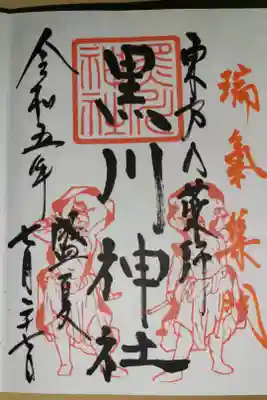 瑞氣集門
東方乃薬師
黒川神社
盛夏
令和五年
七月二十七日